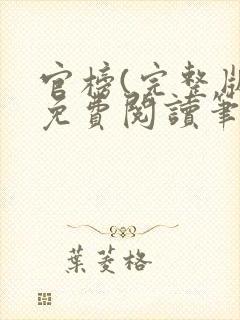 官榜(完整版
免費閱讀筆
葉菱格